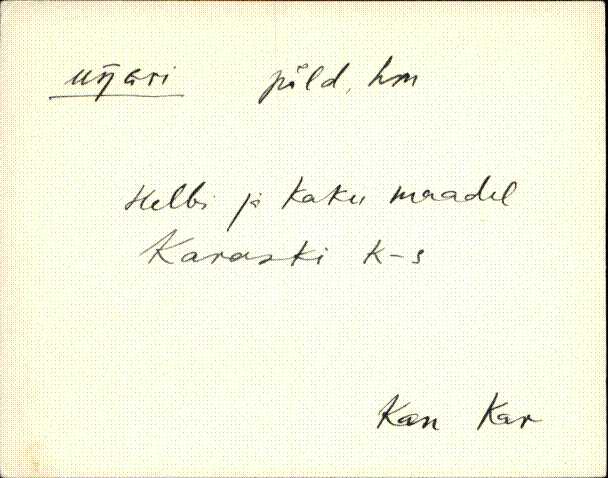 põld, hm
Helbi ja Kaku maadel
Karaski k-s
Kan Kar